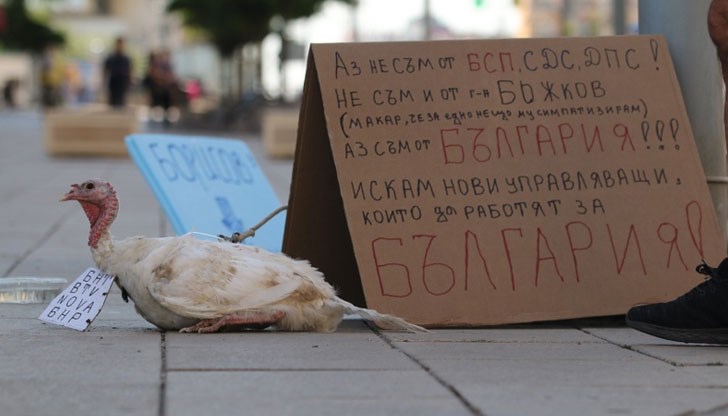 Аз не съм от БСП, СДС, ДПС!
не съм и от г-н Божков
(макар, че за едно нещо му симпатизирам)
Аз съм от България!!!
искам нови управляващи,
които да работят за
България!
Борисов,
БНТ
BTV
NOVA
БНР